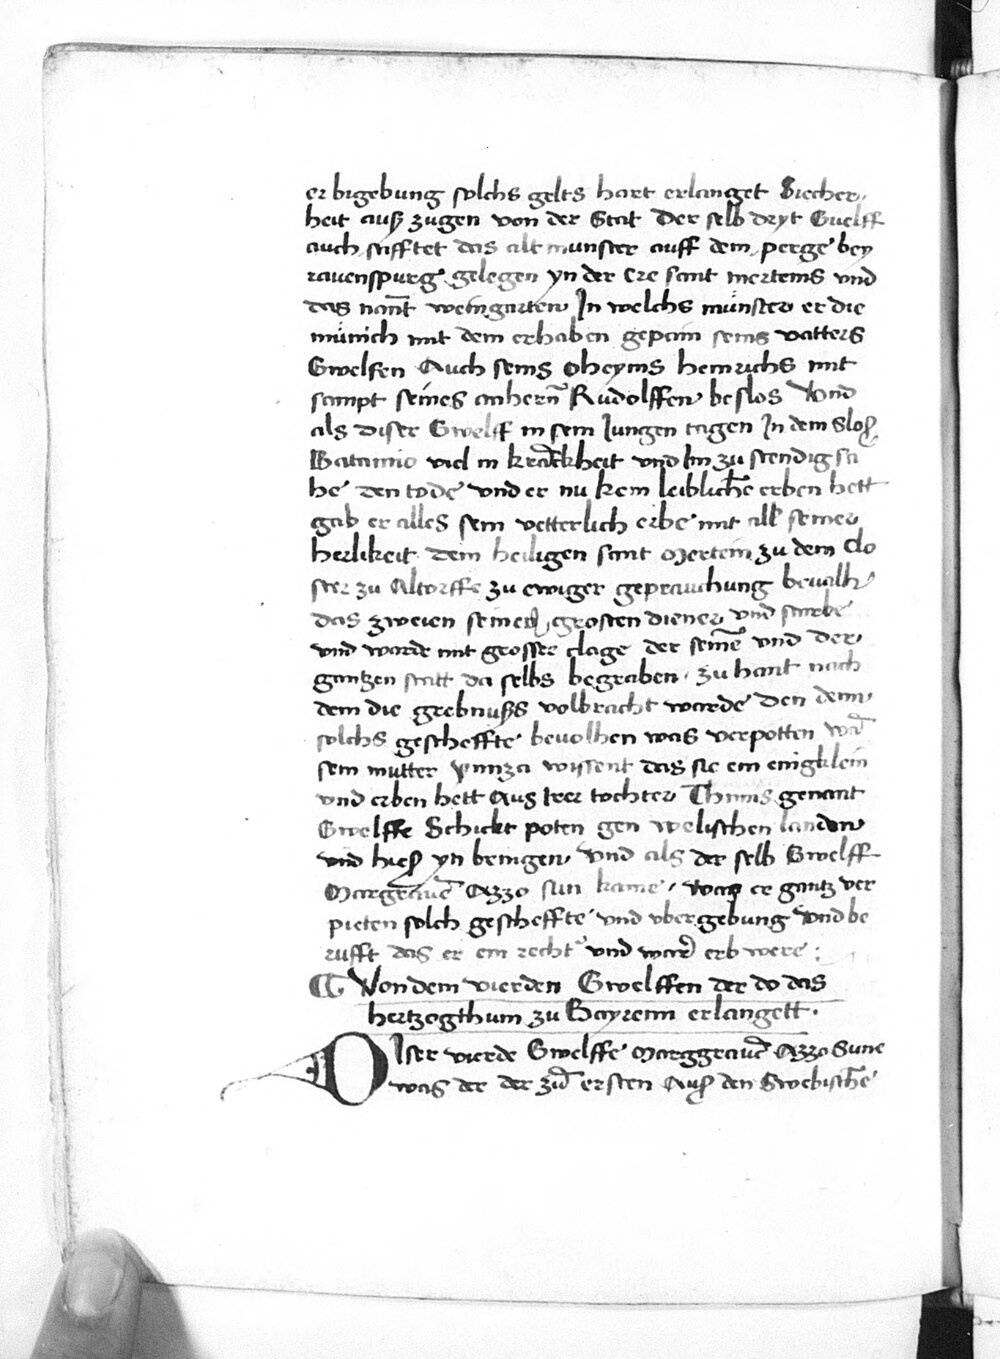 er brigebung solchs gelts hart erlanget Siecher,
heit auß zugen von der Stat Der selb dryt Guelff
auch stifftet das alt munster auff dem perge bey
rauenspurg gelegen yn der Ere sant mertems vnd
das nant̄ weingarten In welchs mu̇nster er die
mu̇nich mit dem erhaben gepain seins vatters
Gwelfen Auch seins oheyms heinrichs mit
sampt seines anhern̄ Rudolffen beslos Vnd
als diser Gwelff in sein Jungen tagen In dem Sloß
Batanno viel in kra̅ckheit vnd Im zu stendig sa
he den tode vnd er nu kein leiblich̄e erben hett
gab er alles sein vetterlich erbe mit all seiner
herlikeit dem heiligen sant Mertein zu dem Clo
ster zu Altorffe zu ewiger geprauchung beualh
das zweien seiner grosten diener vnd starbe
vnd warde mit grosser clage der seine̅ vnd der
gantzen statt da selbs begraben · zu hant nach
dem die grebnußs volbracht warde den denn
solchs gescheffte beuolhen was verpotten wa̅
sein mutter ynniza wissent das sie ein enigklein
vnd erben hett Aus Irer tochter Chunis genant
Gwelffe Schickt poten gen welischen landen
vnd hieß yn bringen Vnd als der selb Gwelff
Margraue̅ Azzo sun kame, was er gantz ver
pieten solch gescheffte vnd vbergebung Vnd be
rufft das er ein recht vnd war̄ erb were :
¶ Von dem vierden Gwelffen der do das
hertzogthum zu Bayrenn erlangett ·
DIser vierde Gwelffe Marggraue̅ Azzo Sune
was der der zu̅ ersten Auß den Swebisch̄e